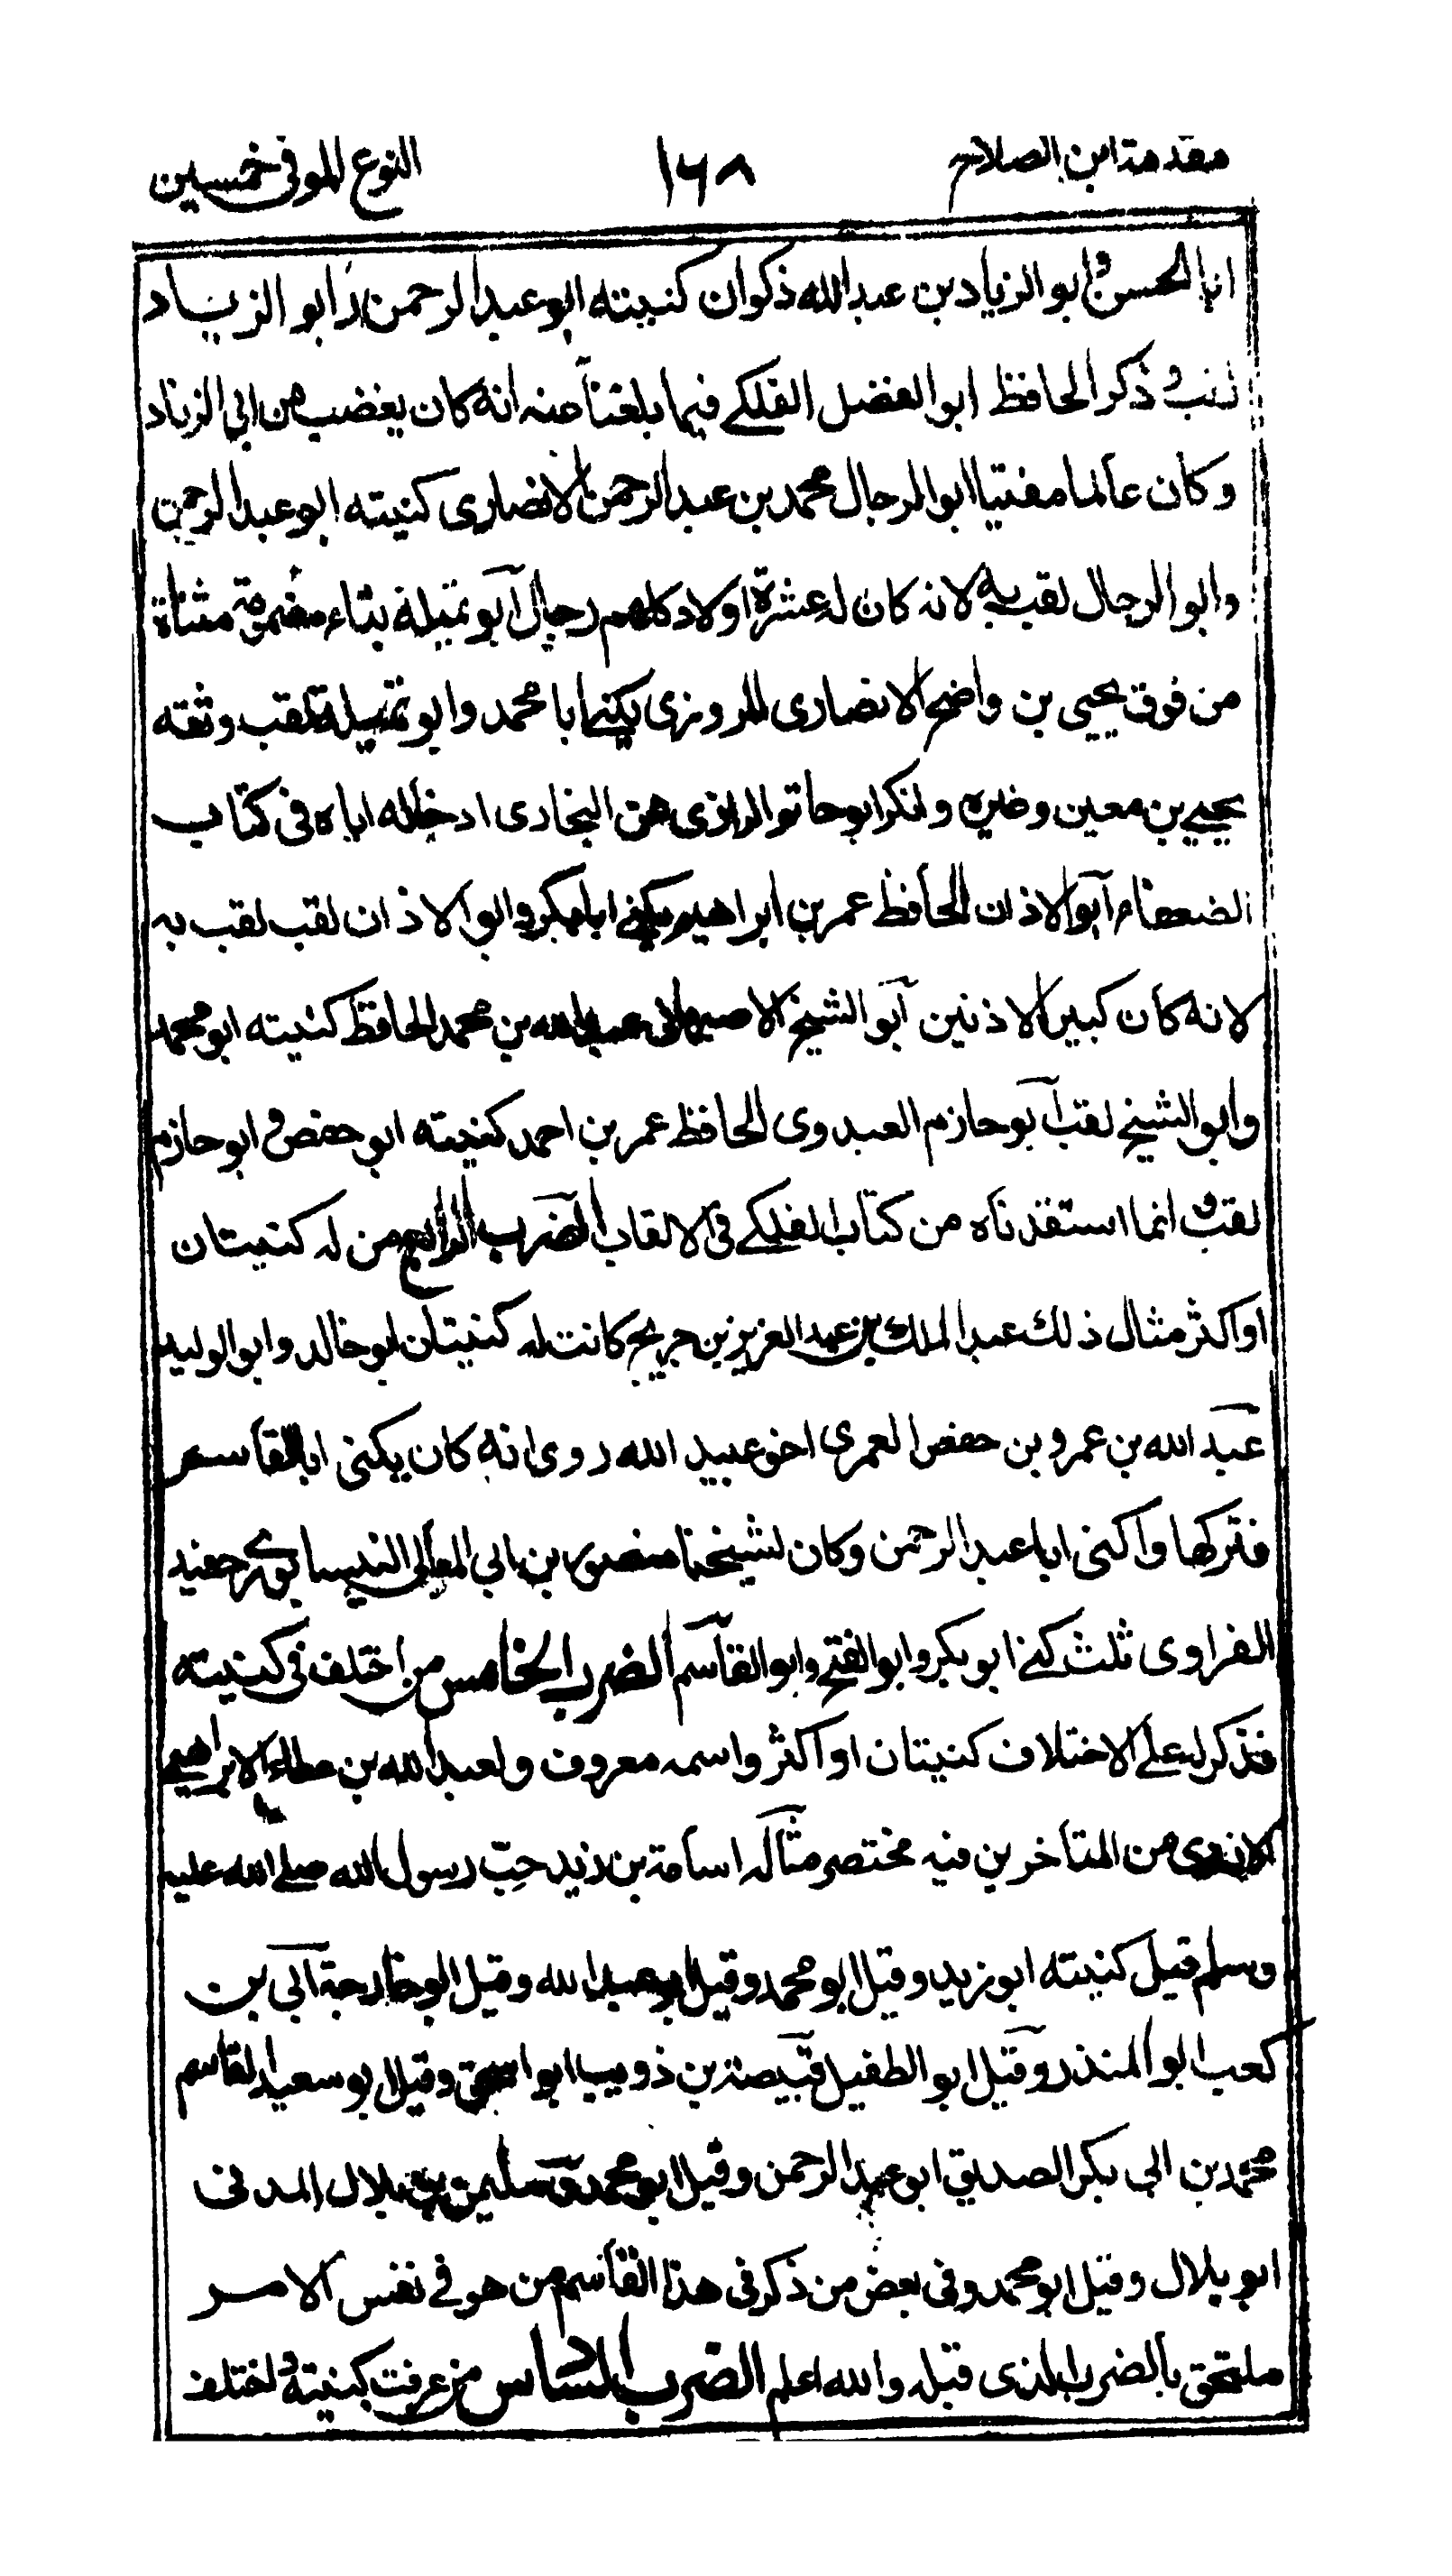 مقدمة ابن الصلاح ١٦٨ النوع الموفى خمسين
ابا الحسن و ابو الزياد بن عبد الله ذكوان كنيته ابو عبد الرحمن و ابو الزنـاد
لقب و ذكر الحافظ ابو الفضل الفلكے فيما بلغنا عنه انه كان يغضب من ابى الزناد
و كان عالما مفتيا ابو الرجال محمد بن عبد الرحمن الانصارى كنيته ابو عبد الرحمن
وابو الرجال لقب به لانه كان له عشرة اولاد كلهم رجال ابو تميلة بتاء مضمومة مثناة
من فوق يحيى بن واضح الانصارى المروزى يكنى ابا محمد وابو تميلة لقب وثقه
يحيے بن معين وغيره و انكر ابو حاتم الرازى على البخارى ادخاله اياه فى كتاب
الضعفاء ابو الاذان الحافظ عمر بن ابراهيم يكنى ابا بكر وابو الاذان لقب لقب به
لانه كان كبير الاذنين ابو الشيخ الاصبهانى عبد الله بن محمد الحافظ كنيته ابو محمد
وابو الشيخ لقب ابو حازم العبدوى الحافظ عمر بن احمد كنيته ابو حفص و ابو حازم
لقب و انما استفدناه من كتاب الفلكے فى الالقاب الضرب الرابع من له كنيتان
او اكثر مثال ذلك عبد الملك بن عبد العزيز بن جريج كانت له كنيتان ابو خالد وابو الوليد
عبد الله بن عمرو بن حفص العمرى اخو عبيد الله روى انه كان يكنى ابا القاسم
فتركها واكنى ابا عبد الرحمن وكان لشيخنا منصور بن ابى المعالى النيسابورى حفيد
الفراوى ثلث كنے ابو بكر وابو الفتح وابو القاسم الضرب الخامس من اختلف فى كنيته
فذكر له على الاختلاف كنيتان او اكثر واسمه معروف ولعبد الله بن عطاء الابراهيمى
من المتأخرين فيه مختصر مثاله اسامة بن زيد حب رسول الله صلے الله عليه
وسلم قيل كنيته ابو زيد وقيل ابو محمد وقيل ابو عبد الله وقيل ابو خارجة ابى بن
كعب ابو المنذر وقيل ابو الطفيل قبيصة بن ذويب ابو اسحق وقيل ابو سعيد القاسم
محمد بن ابى بكر الصديق ابو عبد الرحمن وقيل ابو محمد سليمن بن بلال المدنى
ابو بلال وقيل ابو محمد وفى بعض من ذكر فى هذا القسم من هو فے نفس الامر
ملتحق بالضرب الذى قبله والله اعلم الضرب السادس من عرفت كنيته و اختلف